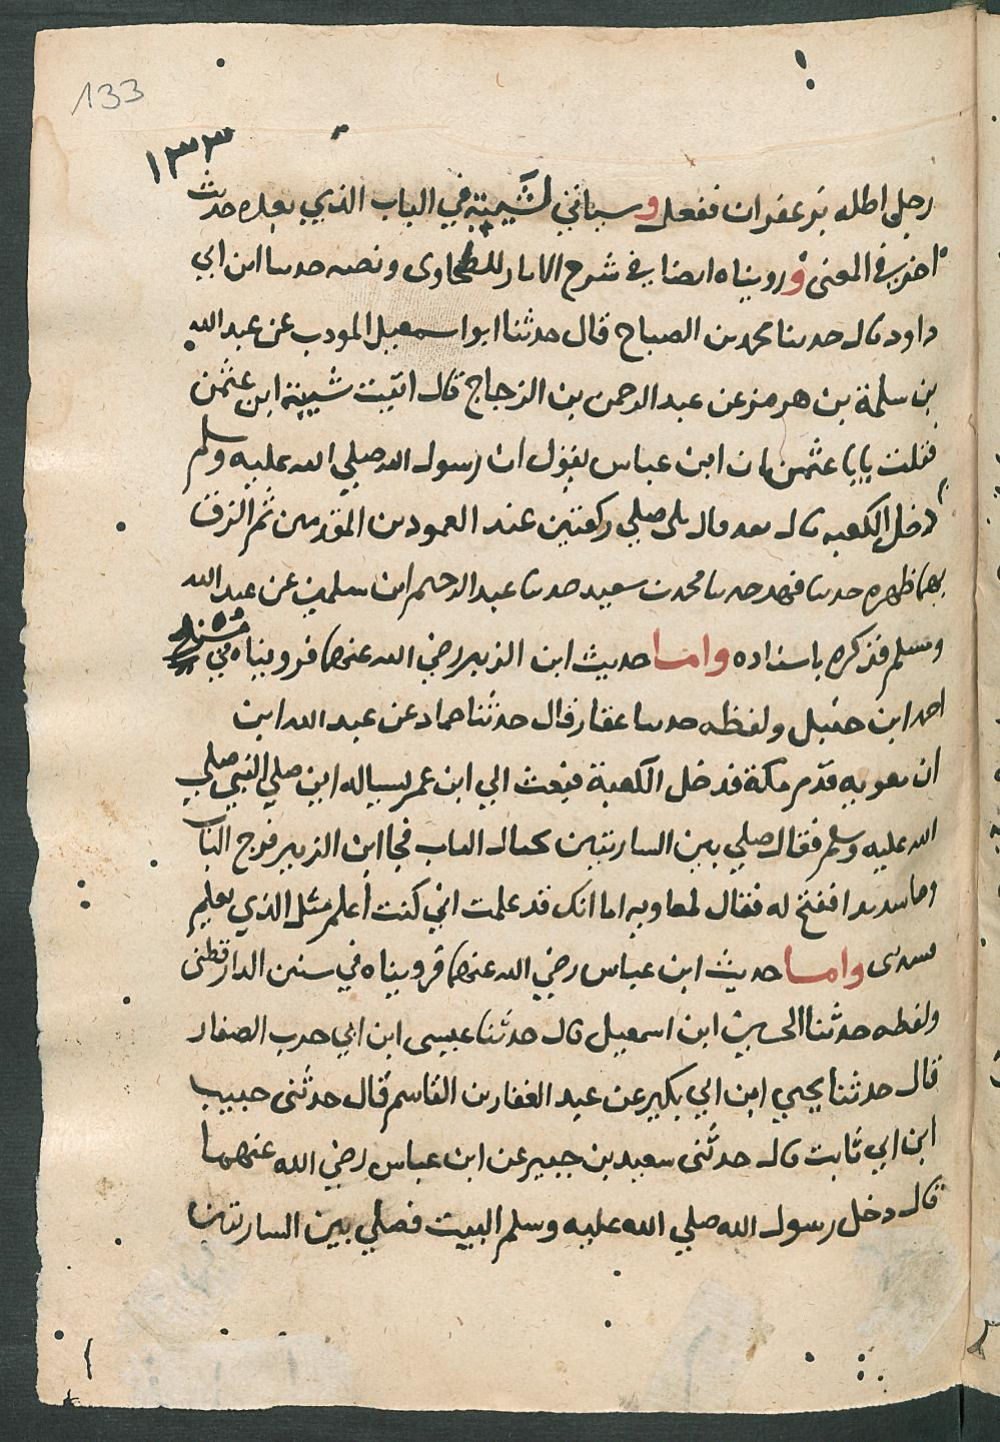 133
١٣٣
رجل اطله بزعفران ففعل وسياتي لشيبة في الباب الذي بعده حديث
اخر في المعنى ورويناه ايضا في شرح الاثار للطحاوى ونصه حدثنا ابن ابي
داود قال حدثنا محمد بن الصباح قال حدثنا ابو اسمعيل المودب عن عبد الله
بن سلمة بن هرمز عن عبد الرحمن بن الزجاج قال اتيت شيبة ابن عثمن
فقلت يابا عثمن ان ابن عباس يقول ان رسول الله صلي الله عليه وسلم
دخل الكعبه قال بعد قال بلى صلي ركعتين عند العمودين المقدمين ثم الزق
بهما ظهره حدثنا فهد حدثنا محمد بن سعيد حدثنا عبد الرحيم ابن سليمن عن عبد الله
ومسلم فذكره باسناده واما حديث ابن الزبير رضي الله عنهما فرويناه في مسند
احمد ابن حنبل ولفظه حدثنا عفان قال حدثنا حماد عن عبد الله ابن
ان معويه قدم مكة فدخل الكعبة فبعث الي ابن عمر يساله اين صلي النبي صلي
الله عليه وسلم فقال صلي بين الساريتين بحيال الباب فجا ابن الزبير فرج الباب
رجا شديدا ففتح له فقال لمعاويه اما انك قد علمت اني كنت اعلم مثل الذي يعلم
حسدنى واما حديث ابن عباس رضي الله عنهما فرويناه في سنن الدارقطنى
ولفظه حدثنا الحسين ابن اسمعيل قال حدثنا عيسى ابن ابي حرب الصفار
قال حدثنا يحيي ابن ابي بكير عن عبد الغفار بن القاسم قال حدثنى حبيب
ابن ابي ثابت قال حدثنى سعيد بن جبير عن ابن عباس رضي الله عنهما
قال دخل رسول الله صلي الله عليه وسلم البيت فصلي بين الساريتين